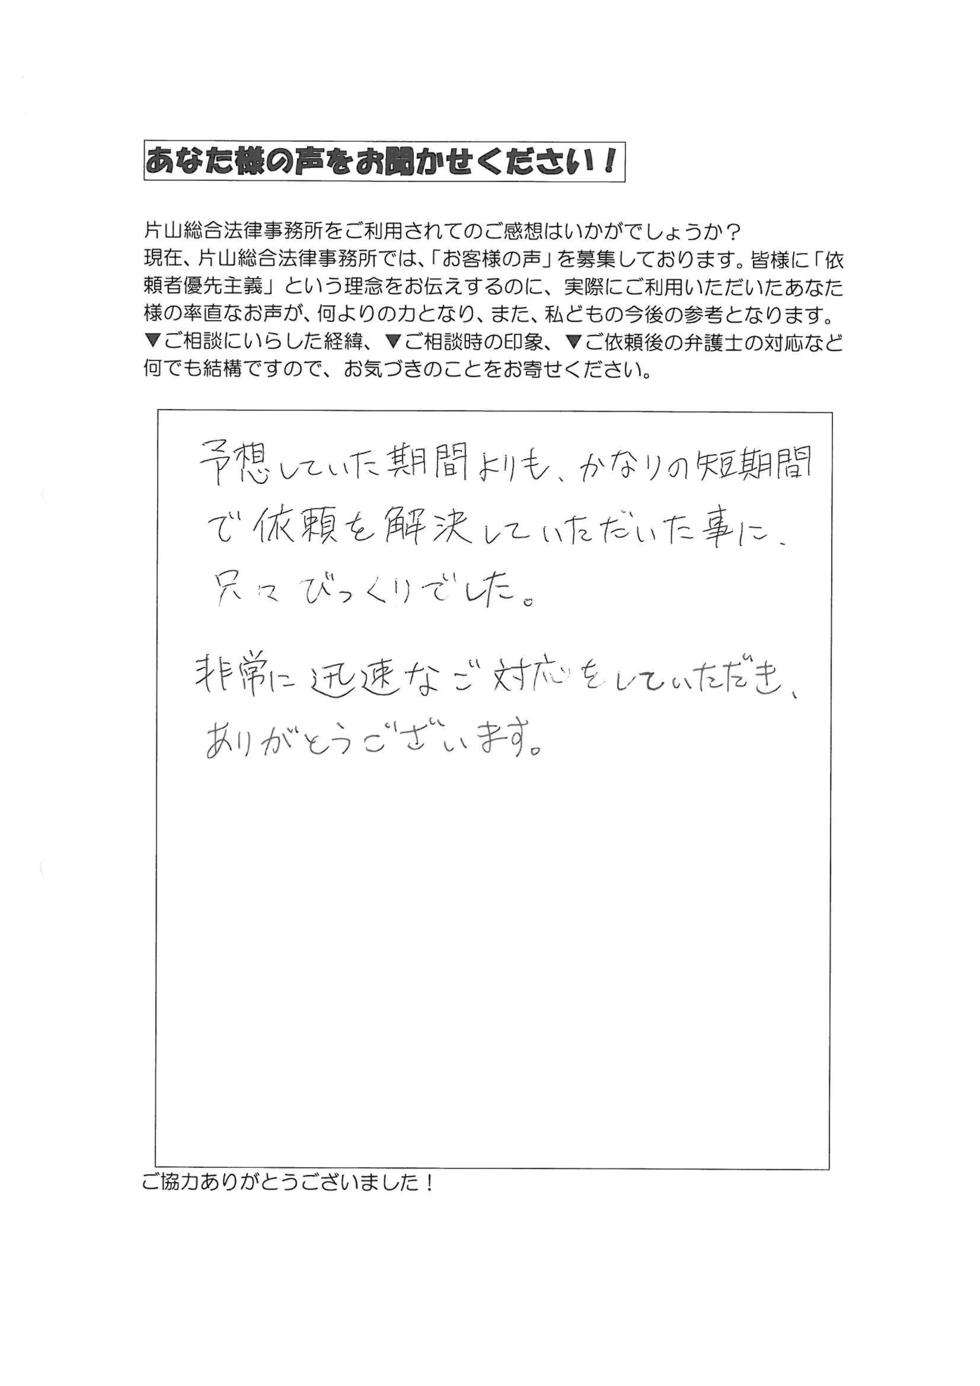 あなた様の声をお聞かせください！
片山総合法律事務所をご利用されてのご感想はいかがでしょうか？
現在、片山総合法律事務所では、「お客様の声」を募集しております。皆様に「依
頼者優先主義」という理念をお伝えするのに、実際にご利用いただいたあなた
様の率直なお声が、何よりの力となり、また、私どもの今後の参考となります。
▼ご相談にいらした経緯、▼ご相談時の印象、▼ご依頼後の弁護士の対応など
何でも結構ですので、お気づきのことをお寄せください。
予想していた期間よりも、かなりの短期間
で依頼を解決していただいた事に、
只々びっくりでした。
非常に迅速なご対応をしていただき、
ありがとうございます。
ご協力ありがとうございました！